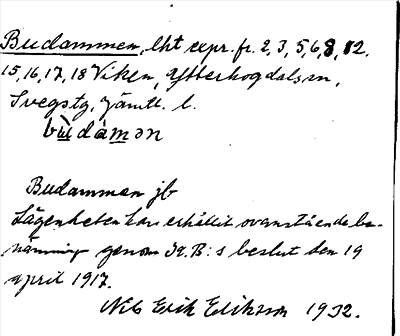 Budammen, lht expr. fr. 2, 3, 5, 6, 8, 12,
15, 16, 17, 18 Viken, Ytterhogdals sn,
Svegs tg, Jämtl. l.
bùdàmən
Budammen jb
Lägenheten har erhållit ovanstående be-
nämning genom Kr. B:s beslut den 19
april 1917.
Nils Erik Eriksson 1932.